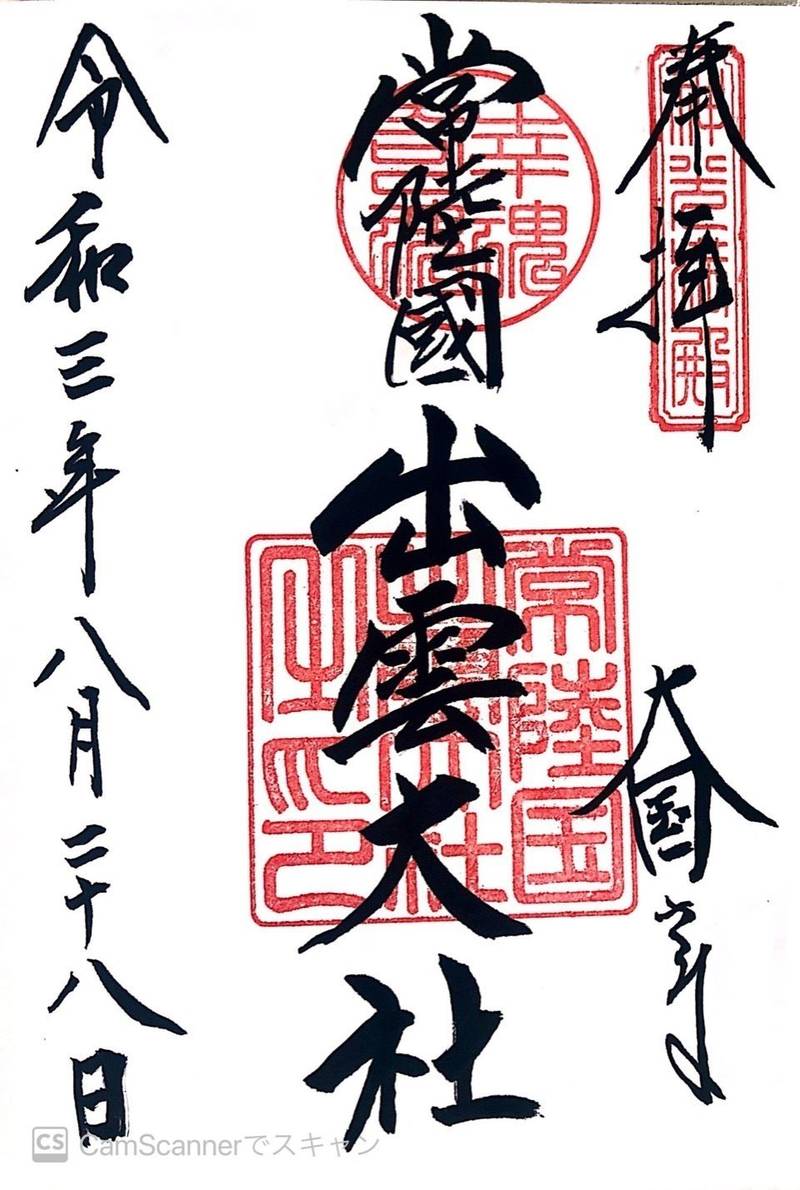 奉拝
大国学
常陸國
出雲大社
令和三年八月二十八日
幸魂
常陸国
出雲大社
之印
CS CamScannerでスキャン